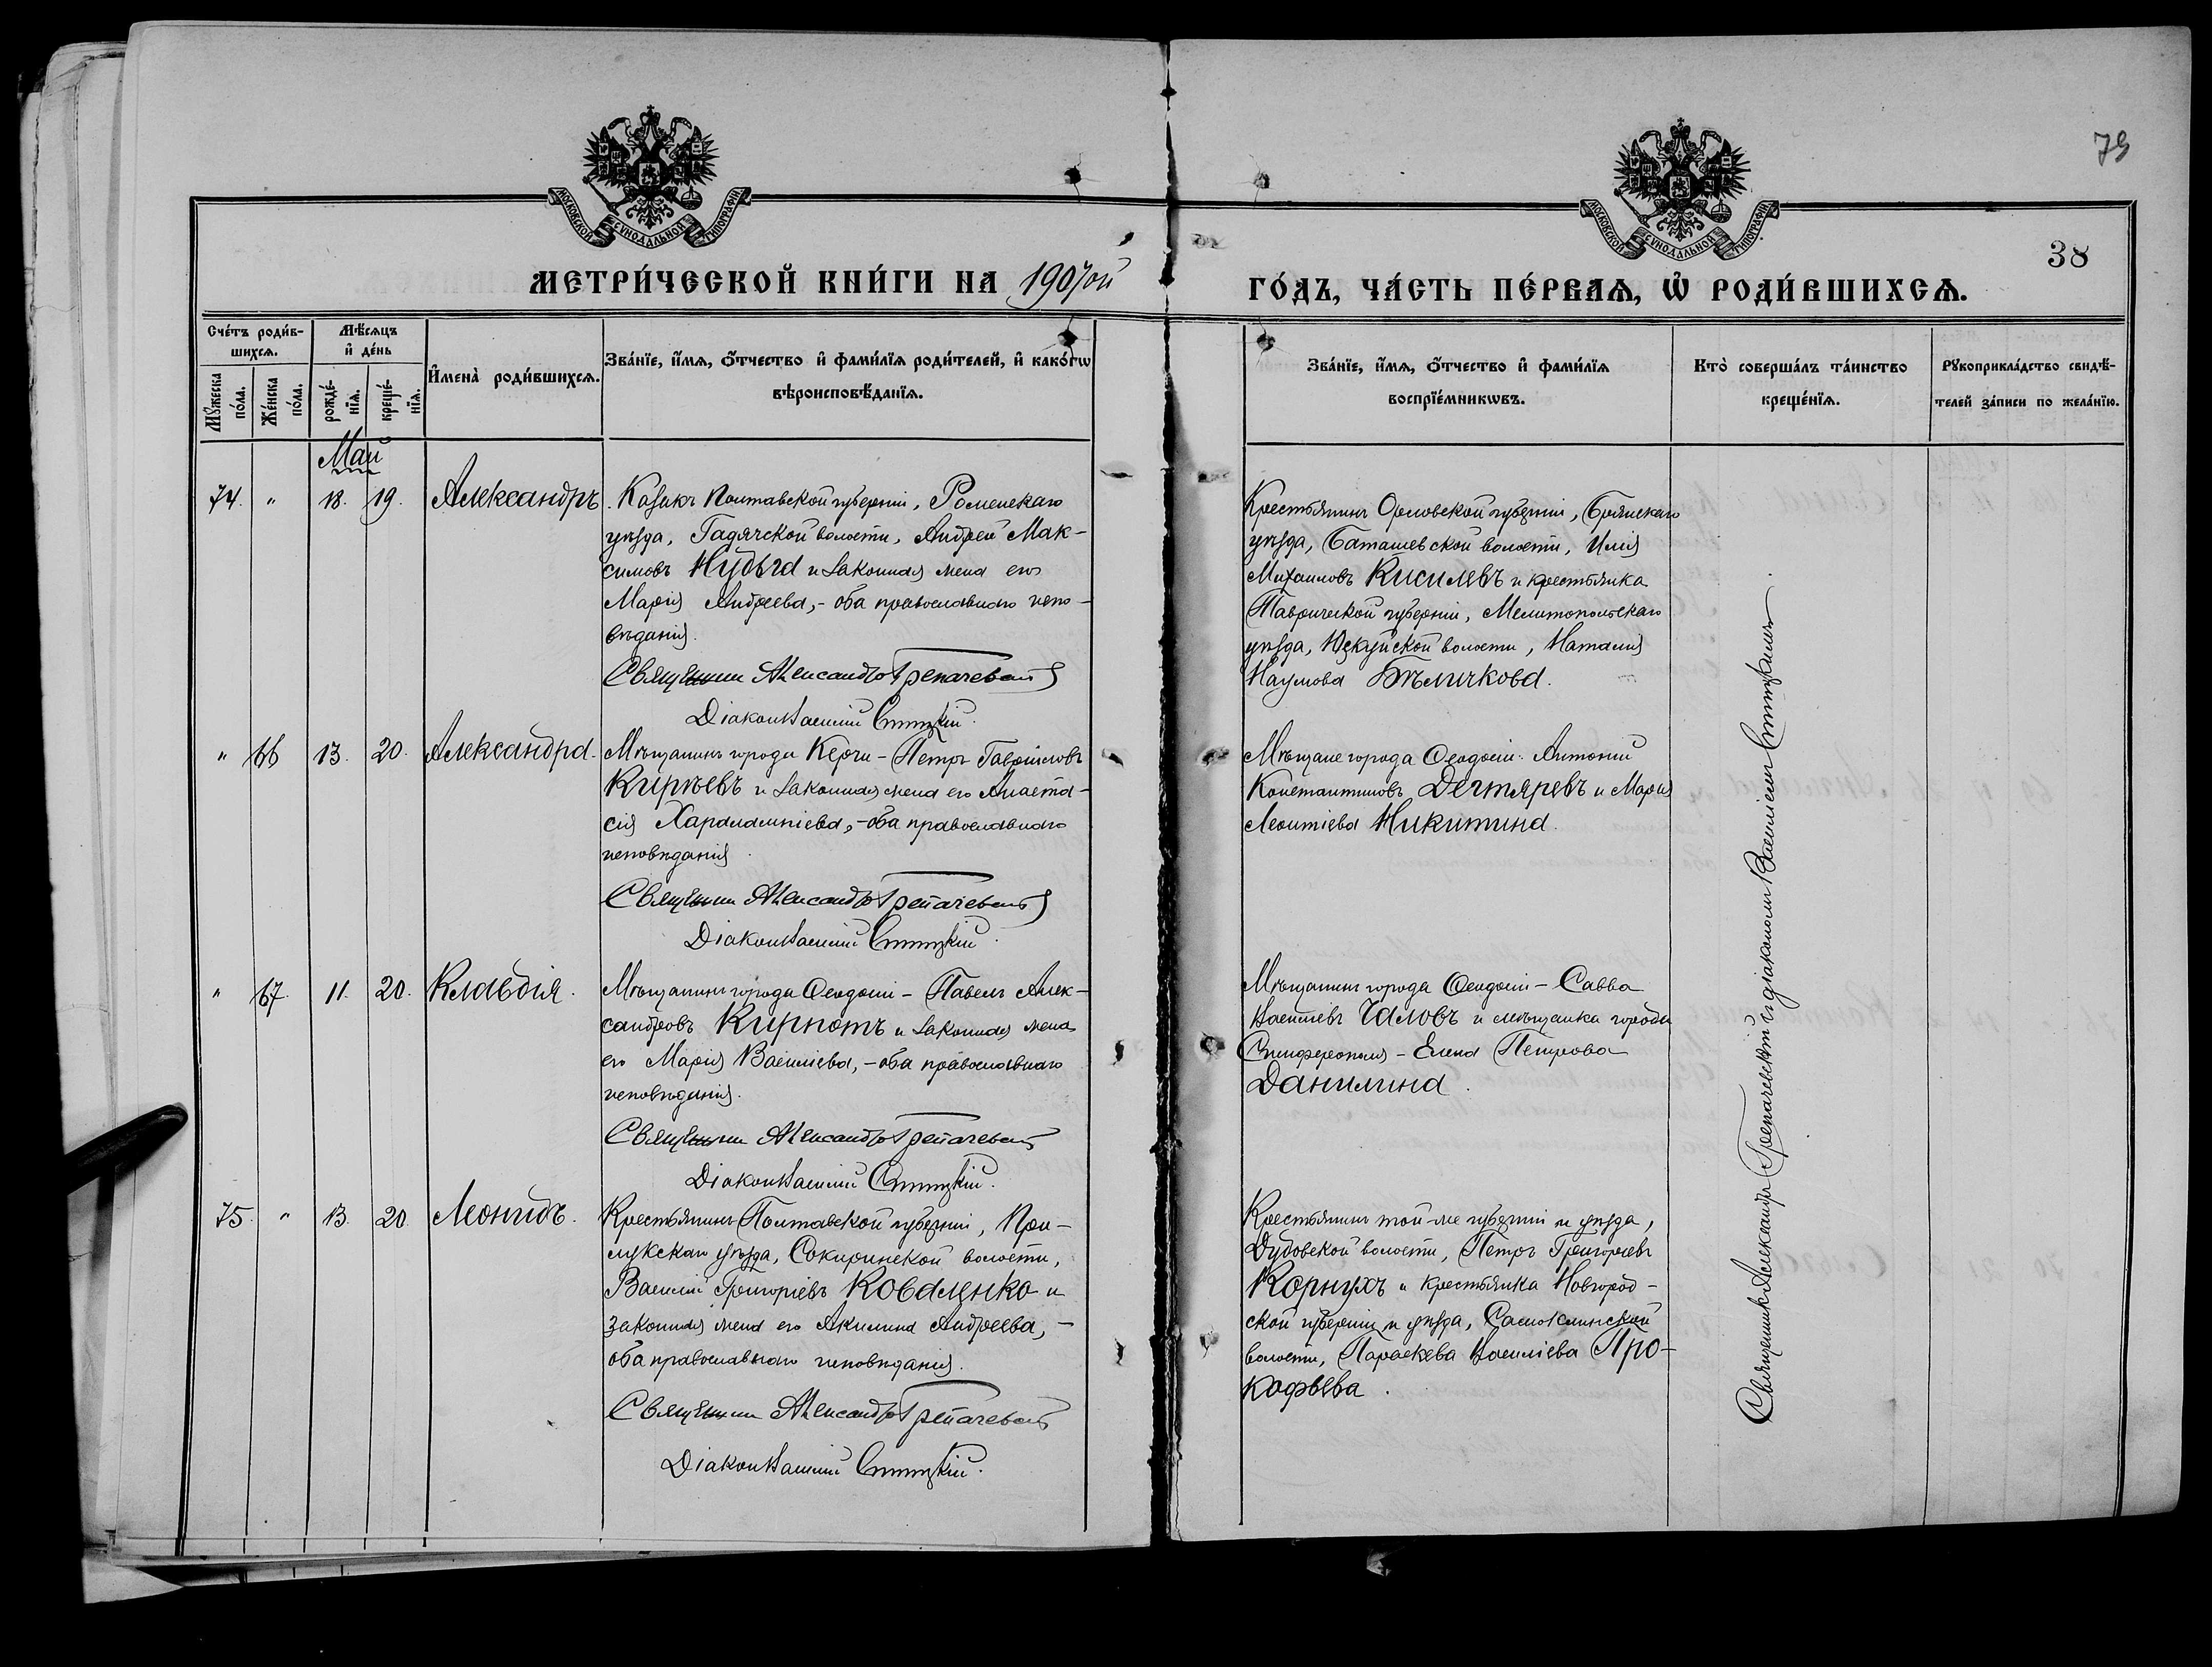 79
МОСКОВСКОЙ СѴНОДАЛЬНОЙ ТИПОГРАФІИ
МОСКОВСКОЙ СѴНОДАЛЬНОЙ ТИПОГРАФІИ
38
МЕТРИ́ЧЕСКОЙ КНИ́ГИ НА 1907ой
ГО́ДЪ, ЧА́СТЬ ПЕ́РВАѦ, Ѡ҆ РОДИ́ВШИХСѦ.
Сче́тъ роди́в-
шихсѧ.
Мꙋ́жеска
по́ла.
Же́нска
по́ла.
Мѣ́сѧцъ
и҆ де́нь
рожде́-
нїѧ.
креще́-
нїѧ.
И҆мена̀ роди́вшихсѧ.
Зва́нїе, и҆́мѧ, ѻ҆́тчество и҆ фами́лїѧ роди́телей, и҆ како́гѡ
вѣроисповѣ́данїѧ.
Зва́нїе, и҆́мѧ, ѻ҆́тчество и҆ фами́лїѧ
воспрїе́мникѡвъ.
Кто̀ соверша́лъ та́инство
креще́нїѧ.
Рꙋкоприкла́дство свидѣ́-
телей за́писи по жела́нїю.
Май
74. " 18. 19. Александръ.
Козакъ Полтавской губерніи, Роменскаго
уѣзда, Гадячской волости, Андрей Мак-
симовъ Нудьга и законная жена его
Марія Андреева, - оба православнаго испо-
вѣданія.
Священник Александръ Трепачевскій
Діаконъ Василій Ститзкій.
Крестьянинъ Орловской губерніи, Брянскаго
уѣзда, Баташевской волости, Илія
Михаиловъ Киcилевъ и крестьянка
Таврической губерніи, Мелитопольскаго
уѣзда, Юзкуйской волости, Наталія
Наумова Бѣличкова.
" 66 13. 20. Александра.
Мѣщанинъ города Керчи - Петръ Гавріиловъ
Кирѣевъ и законная жена его Анаста-
сія Харалампіева, - оба православнаго
исповѣданія.
Священник Александръ Трепачевскій
Діаконъ Василій Ститзкій.
Мѣщане города Ѳеодосіи: Антоній
Константиновъ Дегтяревъ и Марія
Леонтіева Никитина.
" 67. 11. 20. Клавдія.
Мѣщанинъ города Ѳеодосіи - Павелъ Алек-
сандровъ Кирпотъ и законная жена
его Марія Василіева, - оба православнаго
исповѣданія.
Священник Александръ Трепачевскій
Діаконъ Василій Ститзкій.
Мѣщанинъ города Ѳеодосіи - Савва
Василіевъ Чаловъ и мѣщанка города
Симферополя - Елена Петрова
Данилина.
75. " 13. 20. Леонидъ.
Крестьянинъ Полтавской губерніи, При-
лукскаго уѣзда, Сокиринской волости,
Василій Григоріевъ Коваленко и
законная жена его Акилина Андреева, -
оба православнаго исповѣданія.
Священник Александръ Трепачевскій
Діаконъ Василій Ститзкій.
Крестьянинъ той-же губерніи и уѣзда,
Дубовской волости, Петръ Григоріевъ
Корнухъ и крестьянка Новгород-
ской губерніи и уѣзда,
волости, Параскева Василіева Про-
кофьева.
Священник Александръ Трепачевскій съ діакономъ Василіемъ